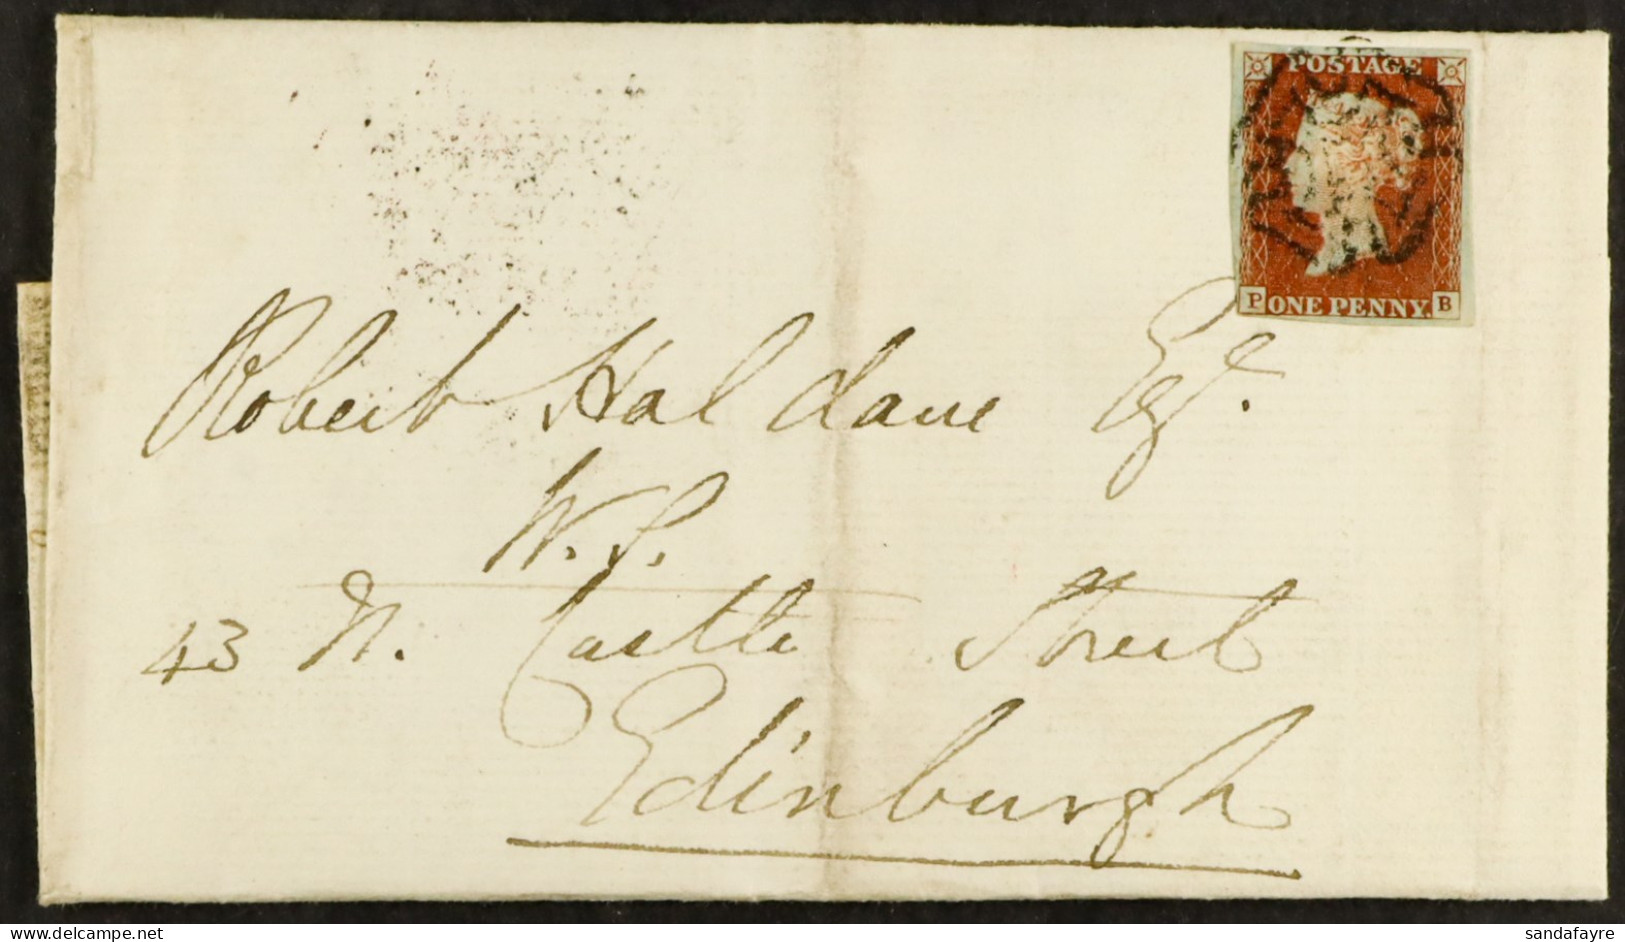 POSTAGE
P ONE PENNY. B
Robert Haldane Esqr.
W.S.
43 N. Castle Street
Edinburgh
www.delcampe.net
sandafayre